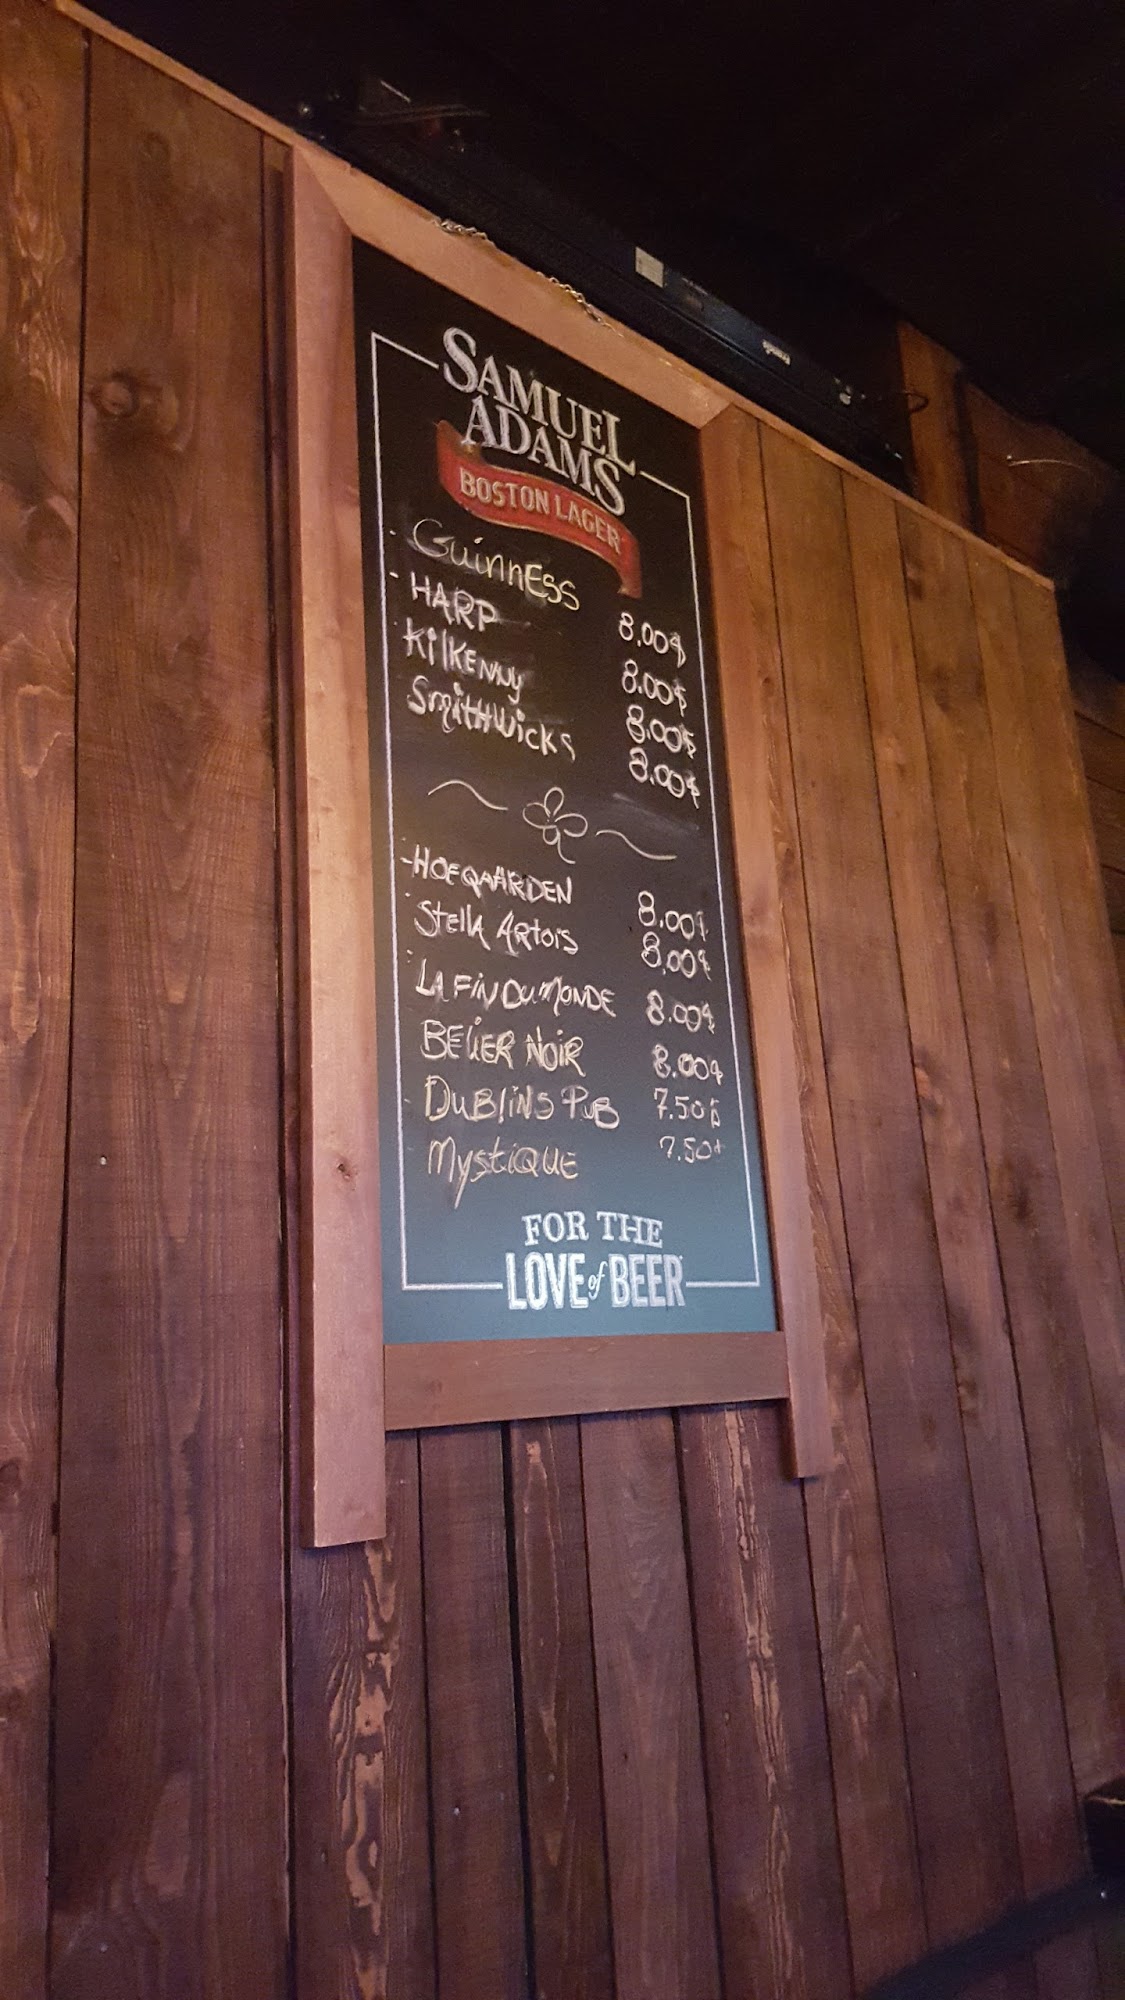 SAMUEL
ADAMS
BOSTON LAGER
- GuinnESS 8.00$
- HARP 8.00$
KilKENNy 8.00$
SmitHwicks 8.00$
- HOEGAARDEN 8.00$
- Stella Artois 8.00$
- LA FiN Du MONDE 8.00$
BELiER NOiR 8.00$
- DuBliNs PuB 7.50$
MystiQUE 7.50$
FOR THE
LOVE of BEER